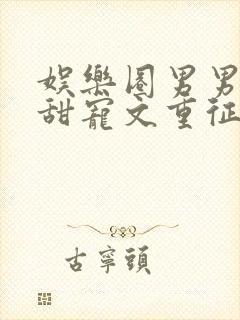 娛樂圈男男
甜寵文重征
古寧頭